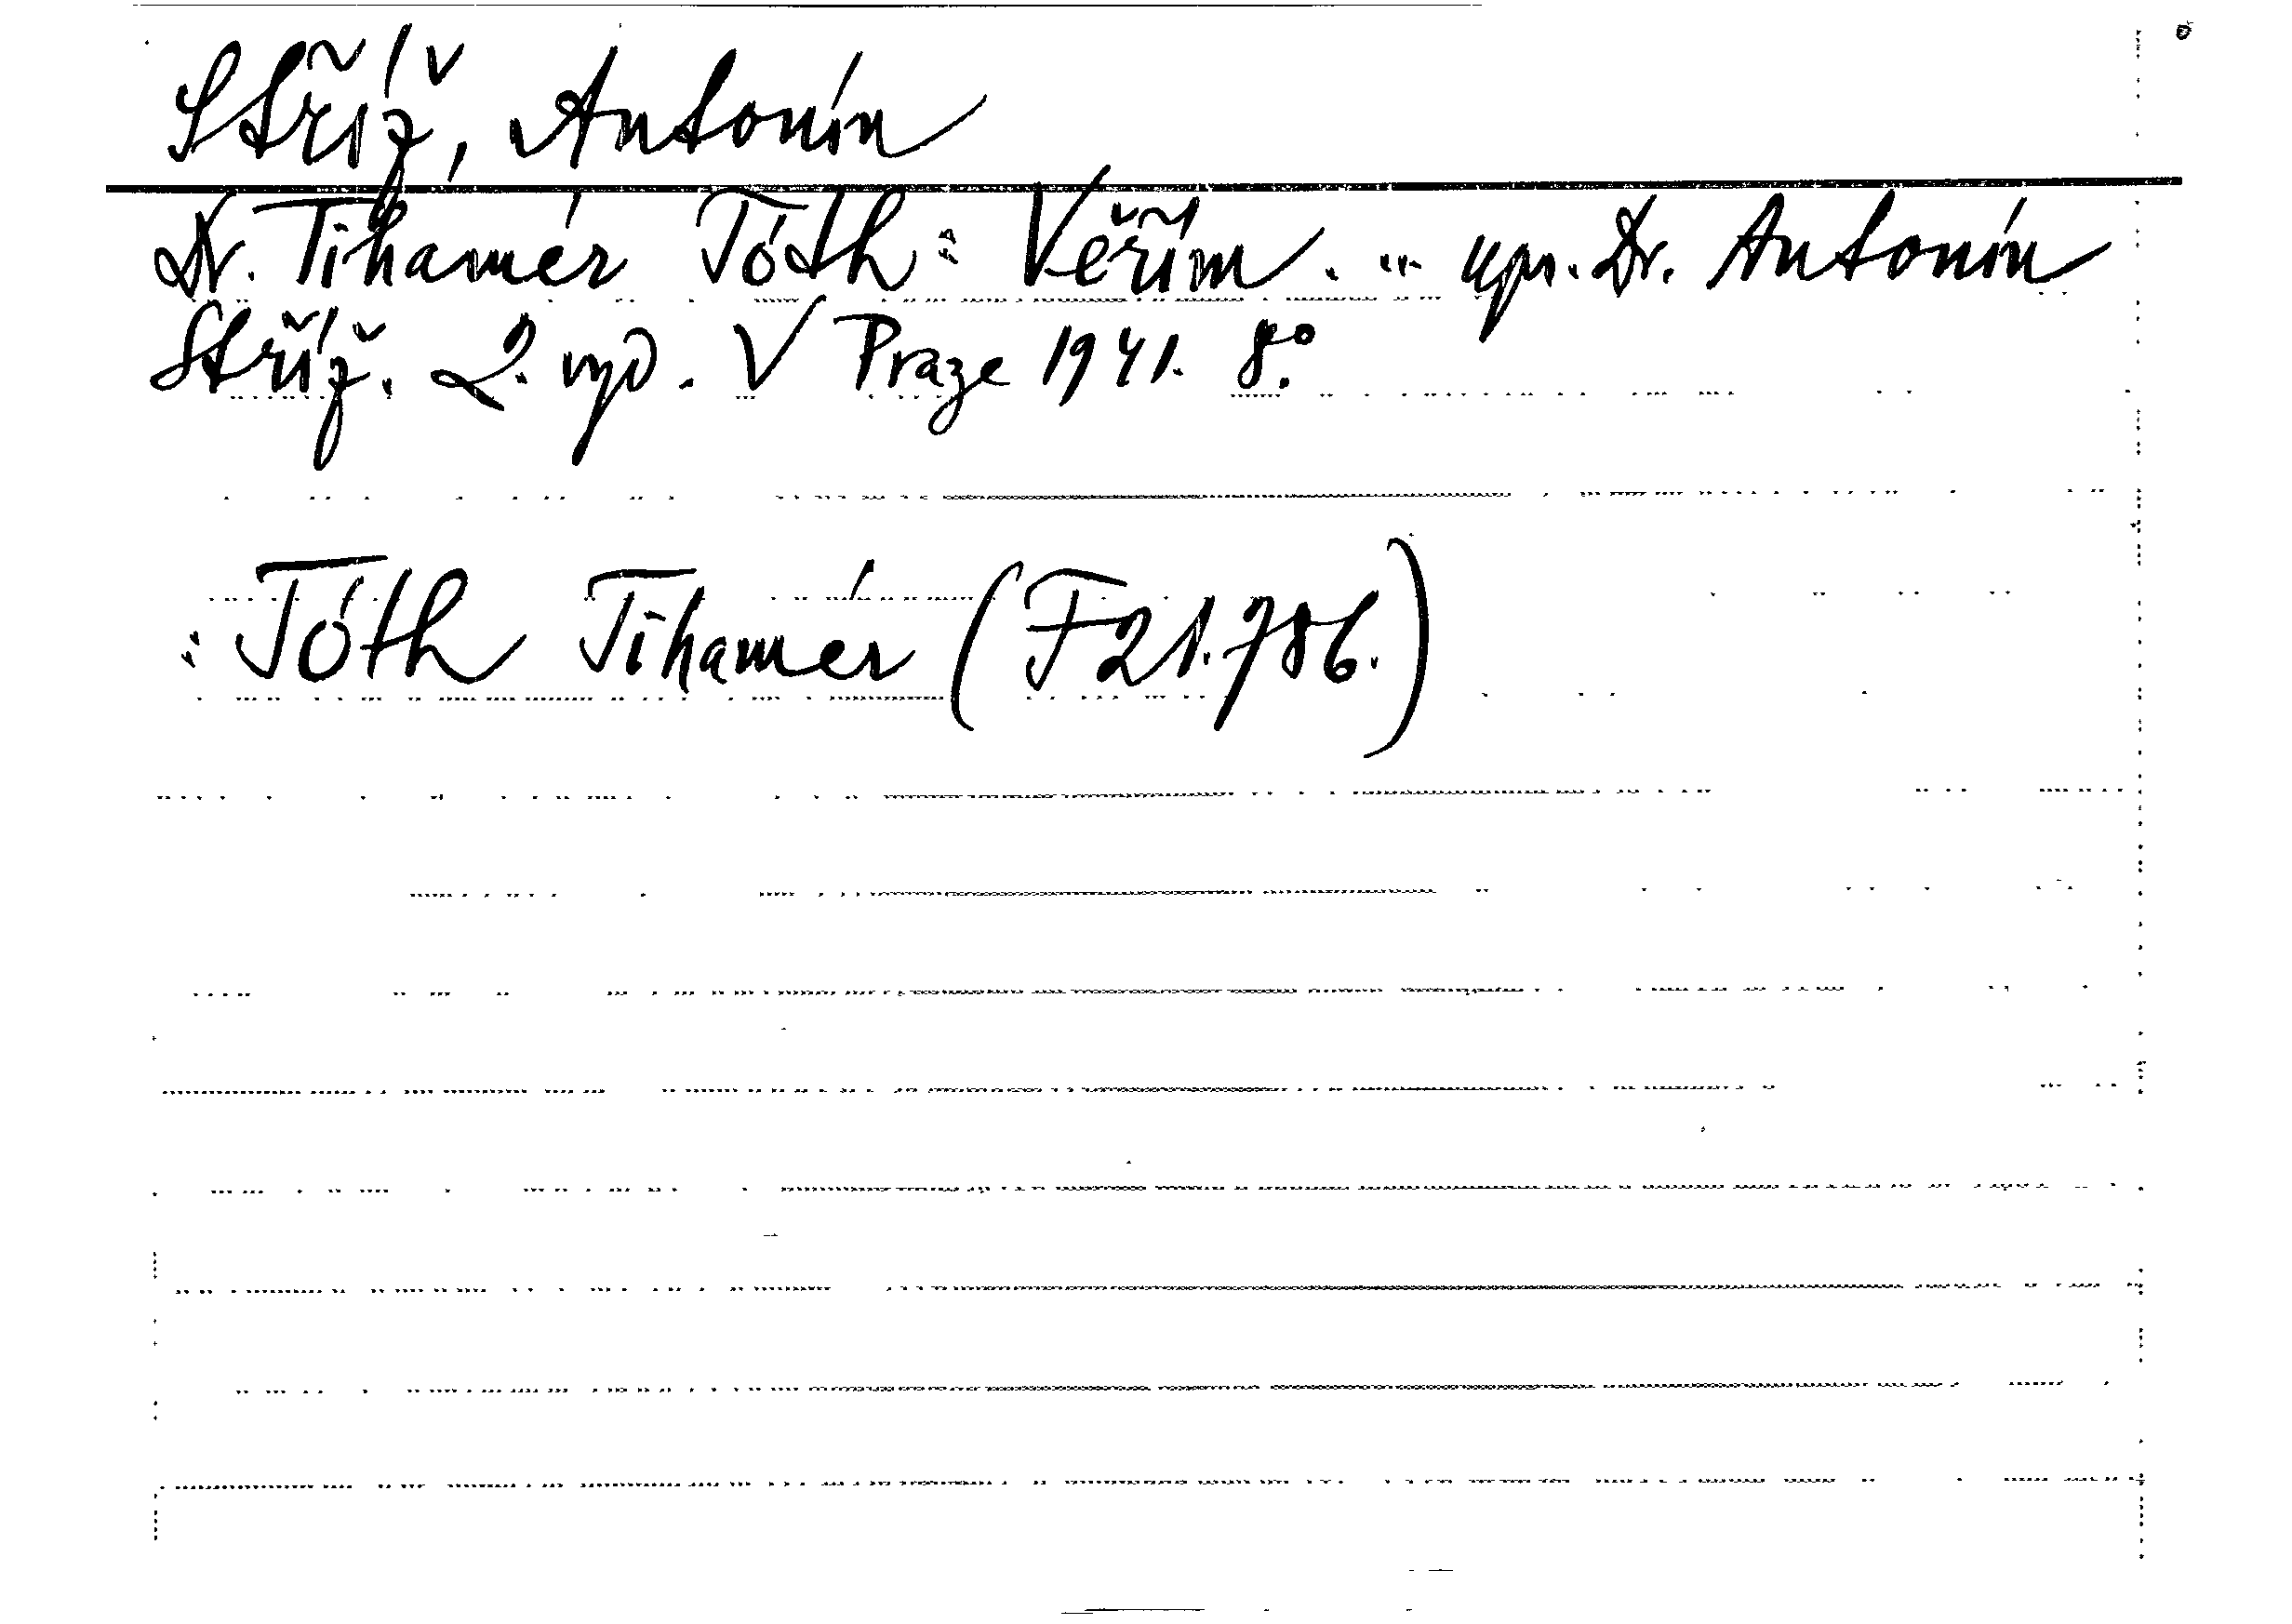 Stříž, Antonín
Dr. Tihamér Tóth: Věřím. ... upr. Dr. Antonín
Stříž. 2. vyd. V Praze 1941. 8°.
: Tóth Tihamér (F21.786.)